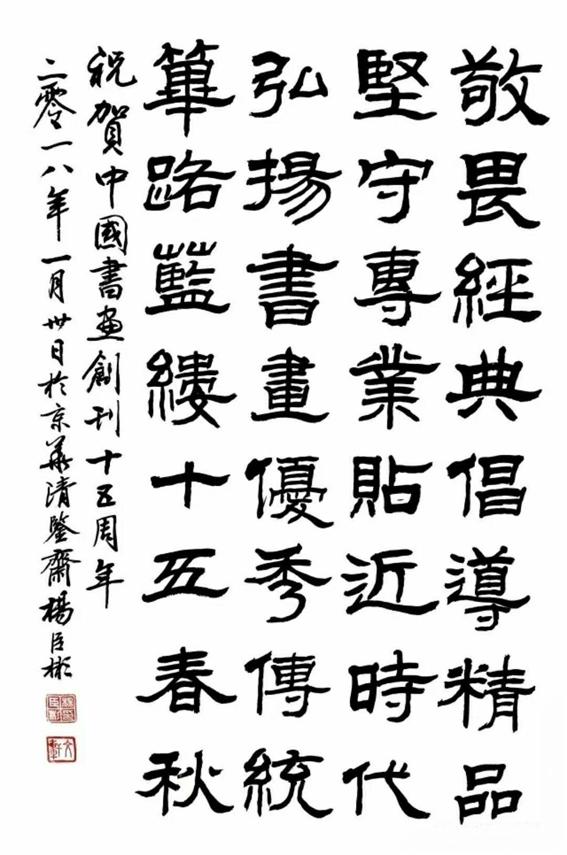 敬畏經典倡導精品
堅守專業貼近時代
弘揚書畫優秀傳統
篳路藍縷十五春秋
祝賀中國書画創刊十五周年
二零一八年一月卅日於京華清鑒齋楊臣彬